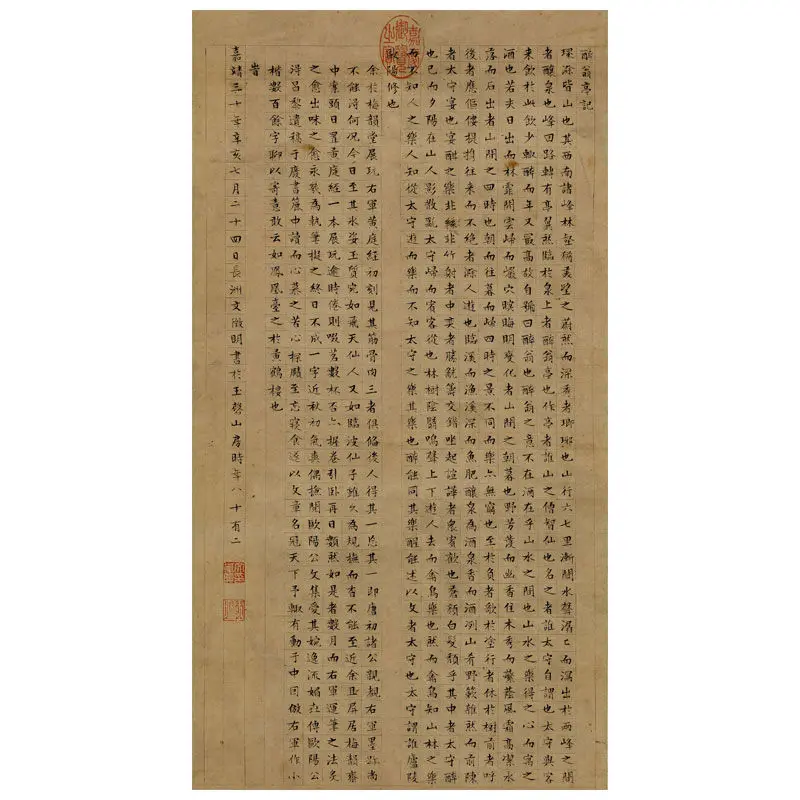 醉翁亭記
環滁皆山也其西南諸峰林壑猶美望之蔚然而深秀者瑯琊也山行六七里漸聞水聲潺〻而瀉出於兩峰之間
者釀泉也峰回路轉有亭翼然臨於泉上者醉翁亭也作亭者誰山之僧智仙也名之者誰太守自謂也太守與客
來飲於此飲少輒醉而年又最高故自號曰醉翁也醉翁之意不在酒在乎山水之間也山水之樂得之心而寓之
酒也若夫日出而林霏開雲歸而巖穴暝晦明變化者山間之朝暮也野芳發而幽香佳木秀而繁蔭風霜高潔水
落而石出者山間之四時也朝而往暮而歸四時之景不同而樂亦無窮也至於負者歌於塗行者休於樹前者呼
後者應傴僂提攜往來而不絕者滁人遊也臨溪而漁溪深而魚肥釀泉為酒泉香而酒冽山肴野蔌雜然而前陳
者太守宴也宴酣之樂非絲非竹射者中奕者勝觥籌交錯坐起諠譁者眾賓歡也蒼顏白髮頹乎其中者太守醉
也已而夕陽在山人影散亂太守歸而賓客從也林樹陰翳鳴聲上下遊人去而禽鳥樂也然而禽鳥知山林之樂
而不知人之樂人知從太守遊而樂而不知太守之樂其樂也醉能同其樂醒能述以文者太守也太守謂誰廬陵
歐陽修也
余於梅韻堂展玩右軍黃庭經初刻見其筋骨肉三者俱備後人得其一忘其一即唐初諸公親覩右軍墨跡尚
不能得何況今日至其水姿玉質宛如飛天仙人又如臨波仙子雖久為規撫而杳不能至近余且屏居梅韻齋
中案頭日置黃庭經一本展玩逾時倦則啜茗數杯否亦握卷引臥再日頹然如是者數月而右軍運筆之法炙
之愈出味之愈永為執筆擬之終日不成一字近秋初氣爽偶撫閱歐陽公文集愛其婉逸流媚立傳歐陽公
得昌黎遺稿于廢書簏中讀而心慕之苦心探賾至忘寢食遂以文章名冠天下予輒有動于中因倣右軍作小
楷數百餘字聊以寄意敢云如鳳凰臺之於黃鶴樓也
旹
嘉靖三十年辛亥七月二十四日長洲文徵明書於玉磬山房時年八十有二